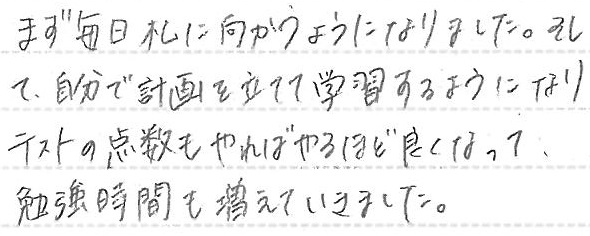 まず毎日机に向かうようになりました。そし
て、自分で計画を立てて学習するようになり
テストの点数もやればやるほど良くなって、
勉強時間も増えていきました。